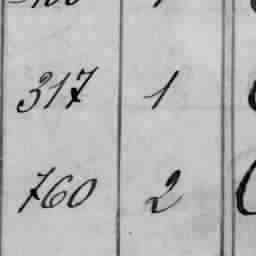 317 1
760 2